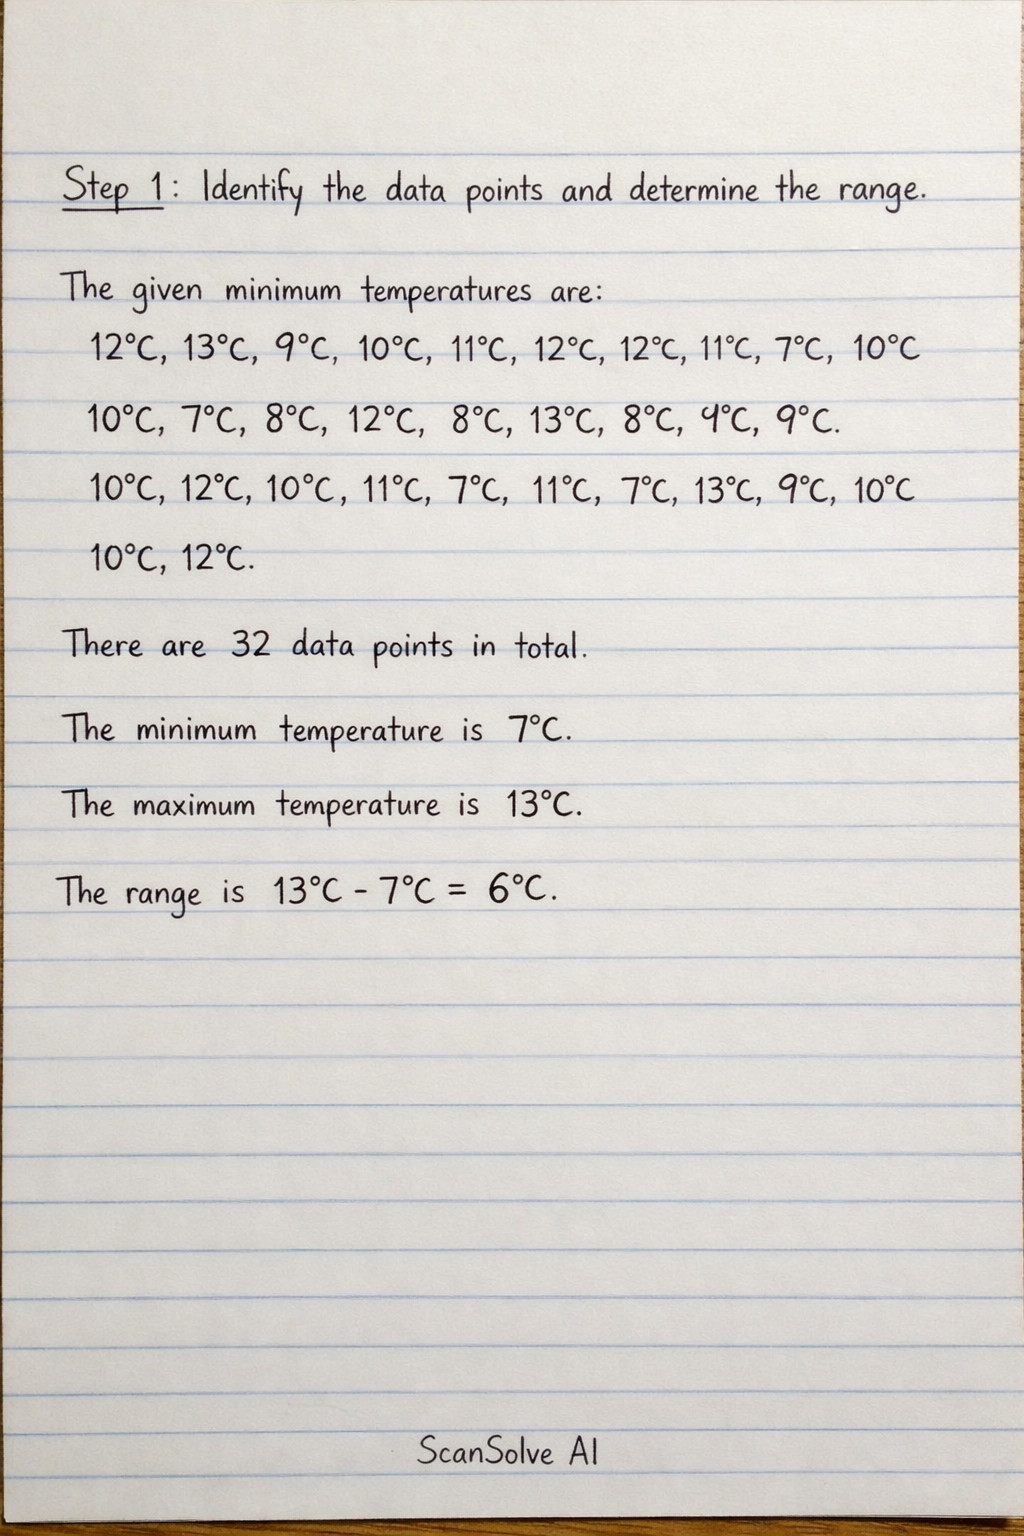 Step 1: Identify the data points and determine the range.
The given minimum temperatures are:
12°C, 13°C, 9°C, 10°C, 11°C, 12°C, 12°C, 11°C, 7°C, 10°C
10°C, 7°C, 8°C, 12°C, 8°C, 13°C, 8°C, 9°C, 9°C.
10°C, 12°C, 10°C, 11°C, 7°C, 11°C, 7°C, 13°C, 9°C, 10°C
10°C, 12°C.
There are 32 data points in total.
The minimum temperature is 7°C.
The maximum temperature is 13°C.
The range is 13°C - 7°C = 6°C.
ScanSolve AI